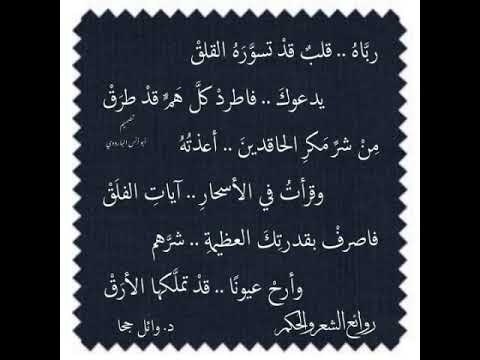 ربَّاهُ .. قلبٌ قدْ تسوَّرَهُ القلقْ
يدعوكَ .. فاطردْ كلَّ هَمٍّ قدْ طرَقْ
تصميم
ابو انس البارودي
مِنْ شرِّ مَكرِ الحاقدينَ .. أعذتُهُ
وقرأتُ في الأسحارِ .. آياتِ الفلَقْ
فاصرفْ بقدرتِكَ العظيمةِ .. شرَّهم
وأرحْ عيونًا .. قدْ تملَّكها الأرَقْ
روائع الشعر والحكم
د. وائل جحا